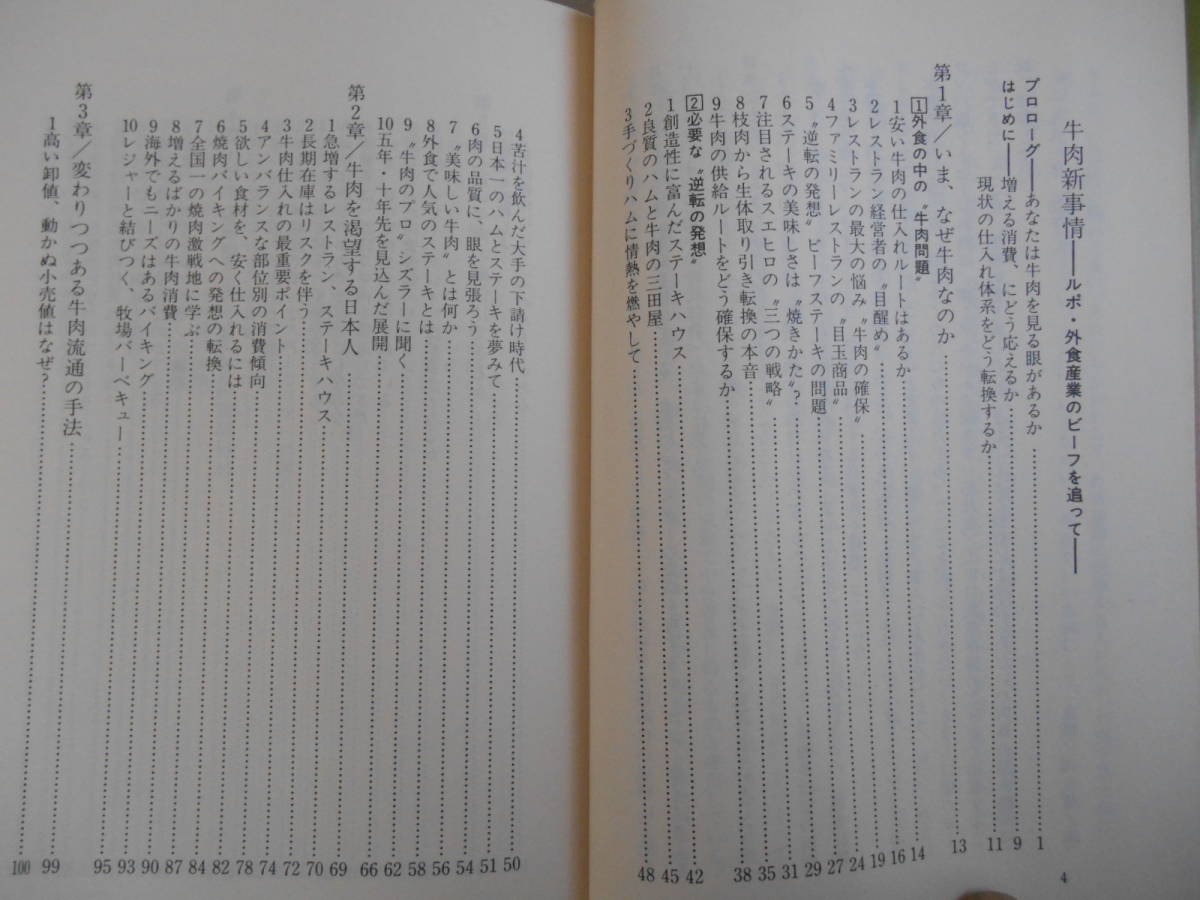 牛肉新事情――ルポ・外食産業のビーフを追って――
プロローグ――あなたは牛肉を見る眼があるか……1
はじめに――増える消費、にどう応えるか……9
現状の仕入れ体系をどう転換するか……11
第1章/いま、なぜ牛肉なのか……13
1外食の中の〝牛肉問題〟
1安い牛肉の仕入れルートはあるか……14
2レストラン経営者の〝目醒め〟……16
3レストランの最大の悩み〝牛肉の確保〟……19
4ファミリーレストランの〝目玉商品〟……24
5〝逆転の発想〟ビーフステーキの問題……27
6ステーキの美味しさは〝焼きかた〟?……29
7注目されるスエヒロの〝三つの戦略〟……31
8枝肉から生体取り引き転換の本音……35
9牛肉の供給ルートをどう確保するか……38
2必要な〝逆転の発想〟
1創造性に富んだステーキハウス……42
2良質のハムと牛肉の三田屋……45
3手づくりハムに情熱を燃やして……48
4
4苦汁を飲んだ大手の下請け時代……50
5日本一のハムとステーキを夢みて……51
6肉の品質に、眼を見張ろう……54
7〝美味しい牛肉〟とは何か……56
8外食で人気のステーキとは……58
9〝牛肉のプロ〟シズラーに聞く……62
10五年・十年先を見込んだ展開……66
第2章/牛肉を渇望する日本人……69
1急増するレストラン、ステーキハウス……70
2長期在庫はリスクを伴う……72
3牛肉仕入れの最重要ポイント……74
4アンバランスな部位別の消費傾向……78
5欲しい食材を、安く仕入れるには……82
6焼肉バイキングへの発想の転換……84
7全国一の焼肉激戦地に学ぶ……87
8増えるばかりの牛肉消費……90
9海外でもニーズはあるバイキング……93
10レジャーと結びつく、牧場バーベキュー……95
第3章/変わりつつある牛肉流通の手法……99
1高い卸値、動かぬ小売値はなぜ?……100